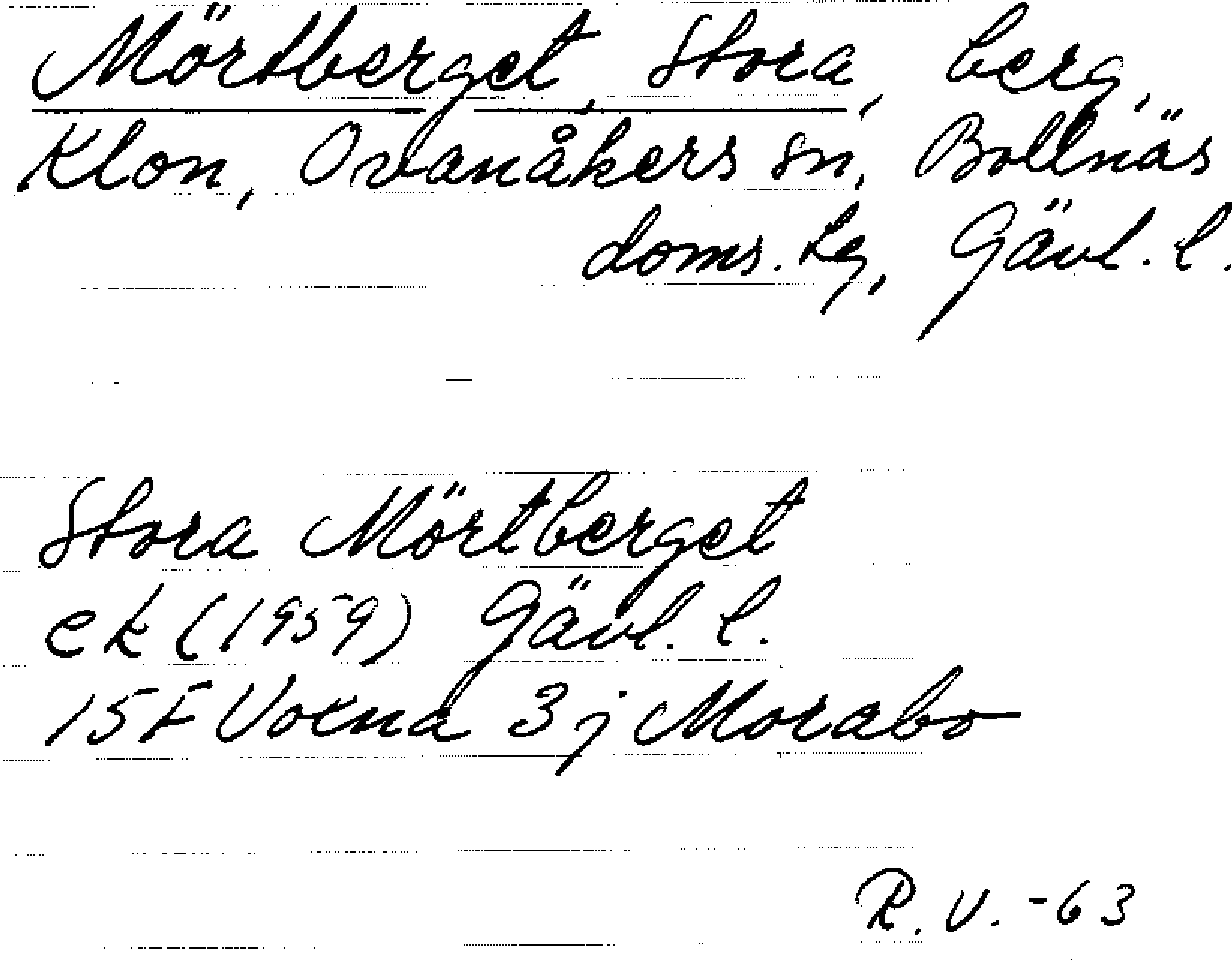 Mörtberget, Stora, berg,
Klon, Ovanåkers sn, Bollnäs
doms.sg, Gävl. l.
Stora Mörtberget
ek (1959) Gävl. l.
15F Voxna 3j Morabo
R.V. -63